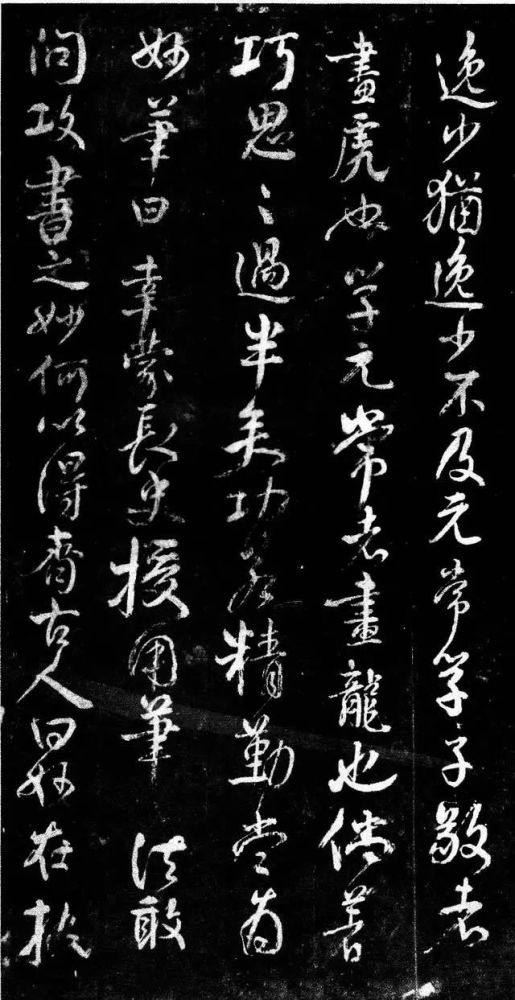 逸少猶逸少不及元常學子敬者
畫虎也學元常者畫龍也儻著
巧思〻過半矣功若精勤當為
妙筆曰幸蒙長史授用筆法敢
問攻書之妙何以得齊古人曰妙在執